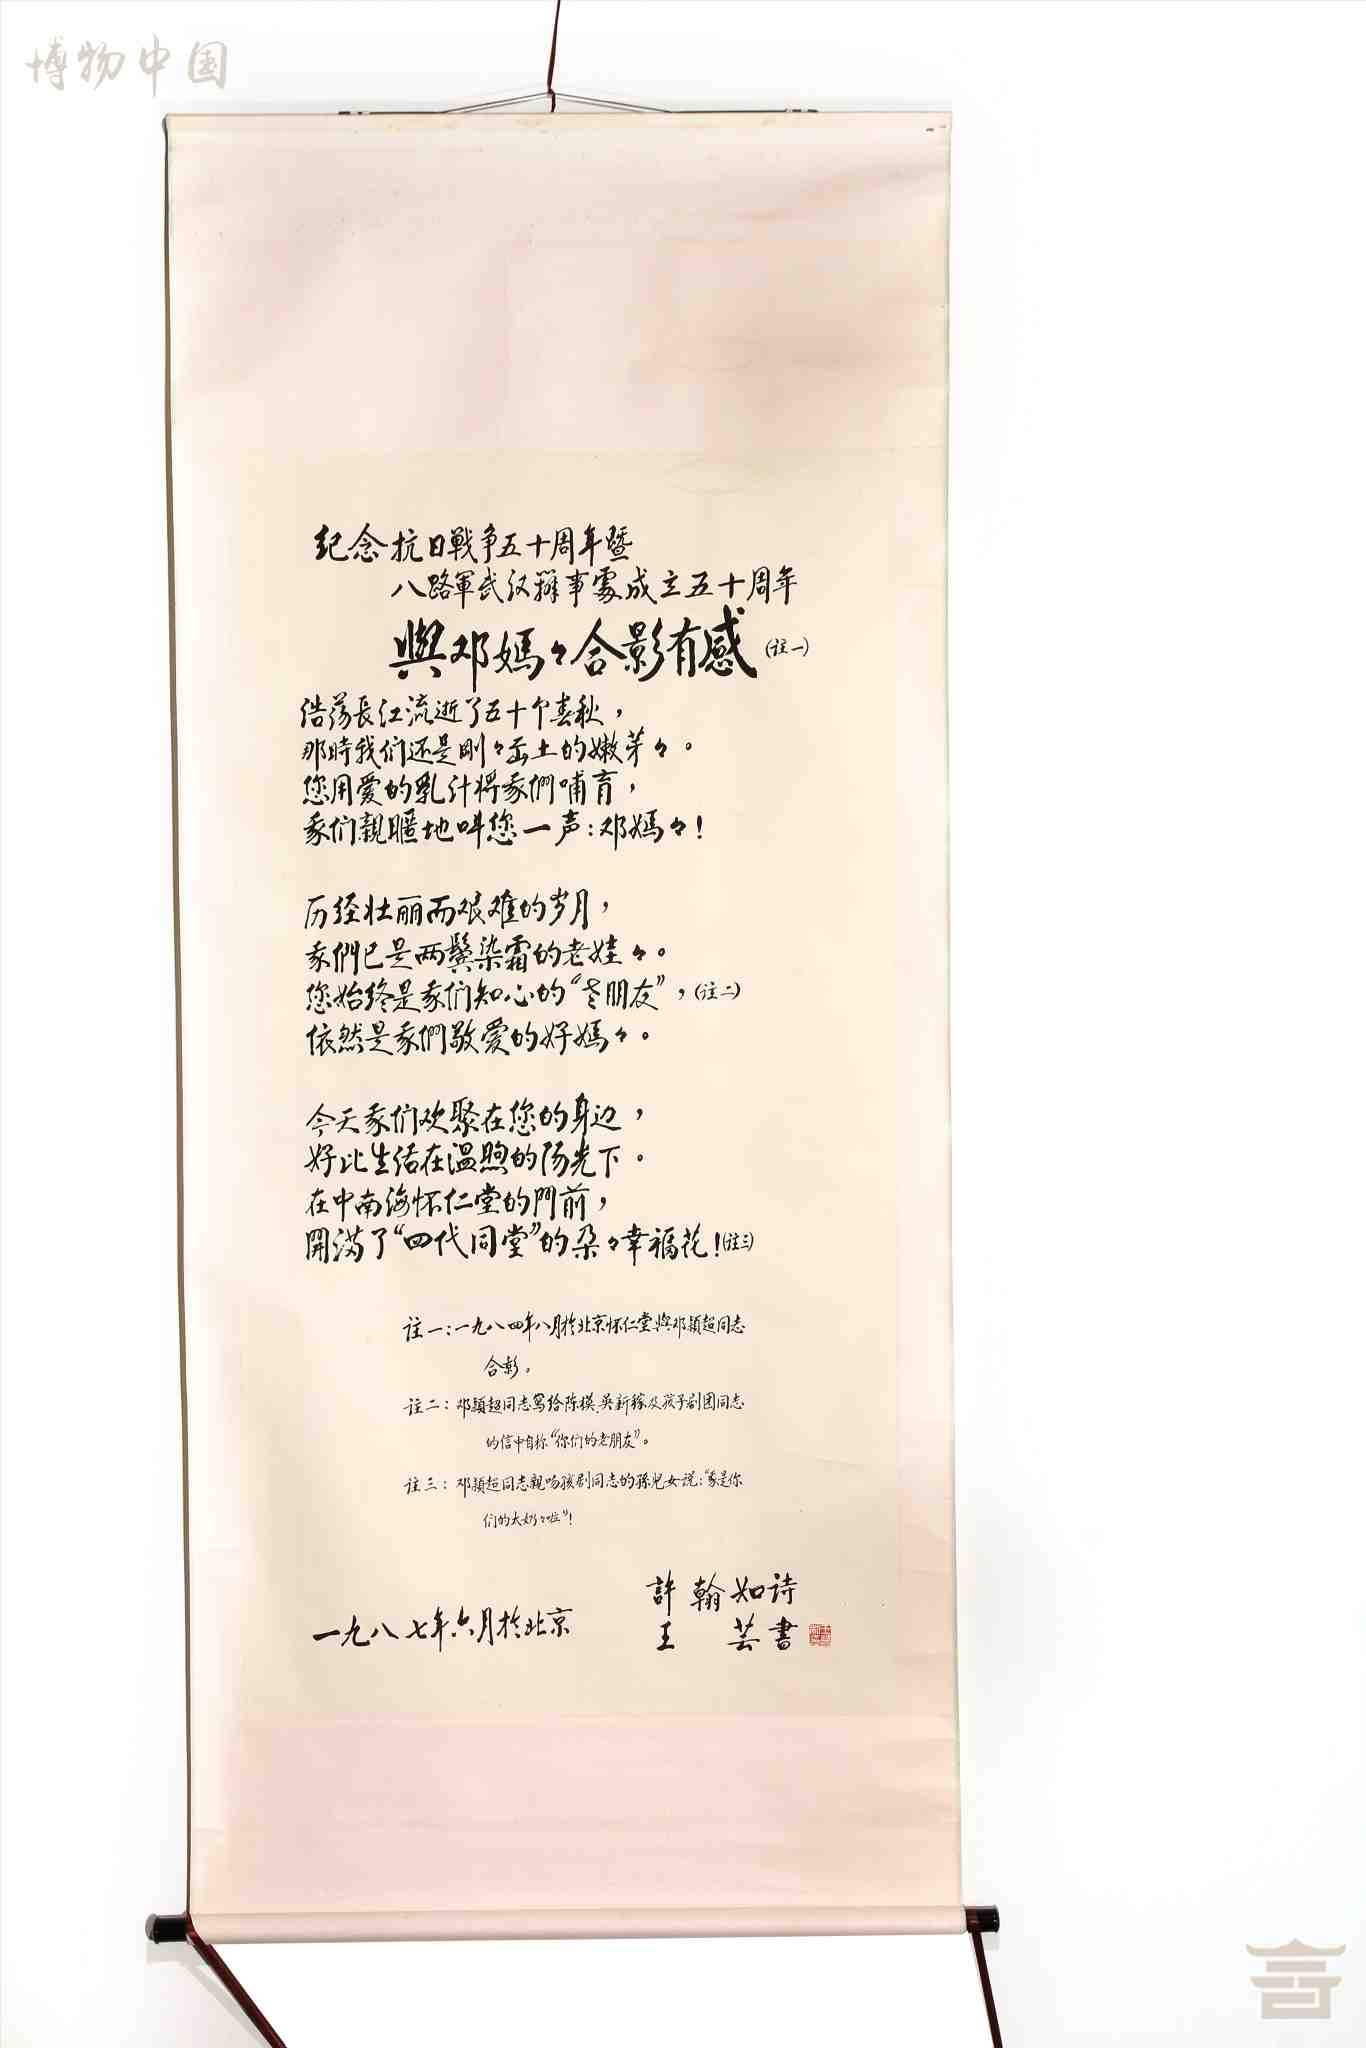 博物中国
纪念抗日戰争五十周年暨
八路軍武汉辦事處成立五十周年
與邓媽々合影有感(註一)
浩荡長江流逝了五十个春秋，
那時我们还是剛々出土的嫩芽々。
您用愛的乳汁將我們哺育，
我们親暱地叫您一声：邓媽々！
历经壮丽而艰难的岁月，
我們已是两鬓染霜的老娃々。
您始终是我们知心的“老朋友”，(註二)
依然是我們敬愛的好媽々。
今天我们欢聚在您的身边，
好比生活在温煦的阳光下。
在中南海怀仁堂的門前，
開满了“四代同堂”的朵々幸福花！(註三)
註一：一九八四年八月於北京怀仁堂與邓穎超同志
合影。
註二：邓穎超同志寫给陈模、吴新稼及孩子剧团同志
的信中自称“你们的老朋友”。
註三：邓穎超同志親吻孩剧同志的孫兒女说：“我是你
们的太奶々啦”！
許翰如诗
王芸書
一九八七年六月於北京